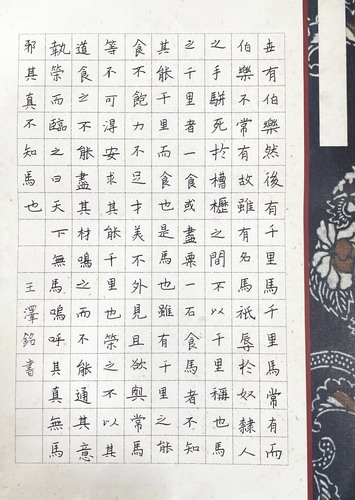 世有伯樂然後有千里馬千里馬常有而
伯樂不常有故雖有名馬祇辱於奴隸人
之手駢死於槽櫪之間不以千里稱也馬
之千里者一食或盡粟一石食馬者不知
其能千里而食也是馬也雖有千里之能
食不飽力不足才美不外見且欲與常馬
等不可得安求其能千里也策之不以其
道食之不能盡其材鳴之而不能通其意
執策而臨之曰天下無馬嗚呼其真無馬
邪其真不知馬也 王澤銘書